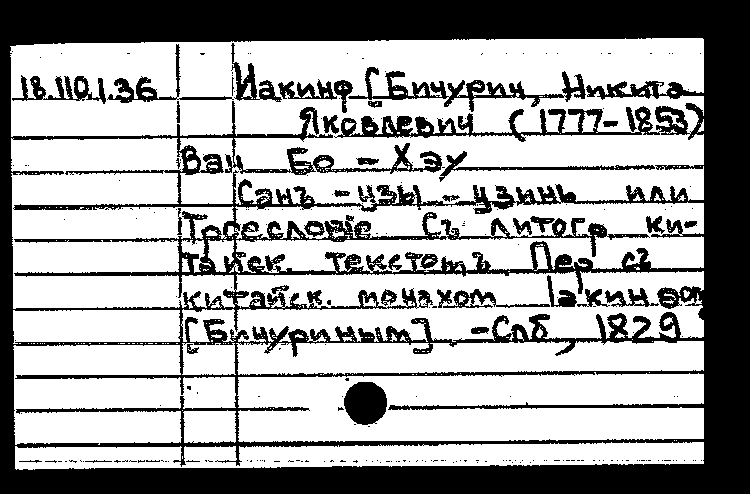 18.110.1.36 Иакинф [Бичурин, Никита
Яковлевич (1777-1853)
Ван Бо - Хэу
Санъ - цзы - цзинь или
Троесловiе Съ литогр. ки-
тайск. текстомъ. Пер съ
китайск. монахом Iакинфом
[Бичуриным]. - Спб, 1829